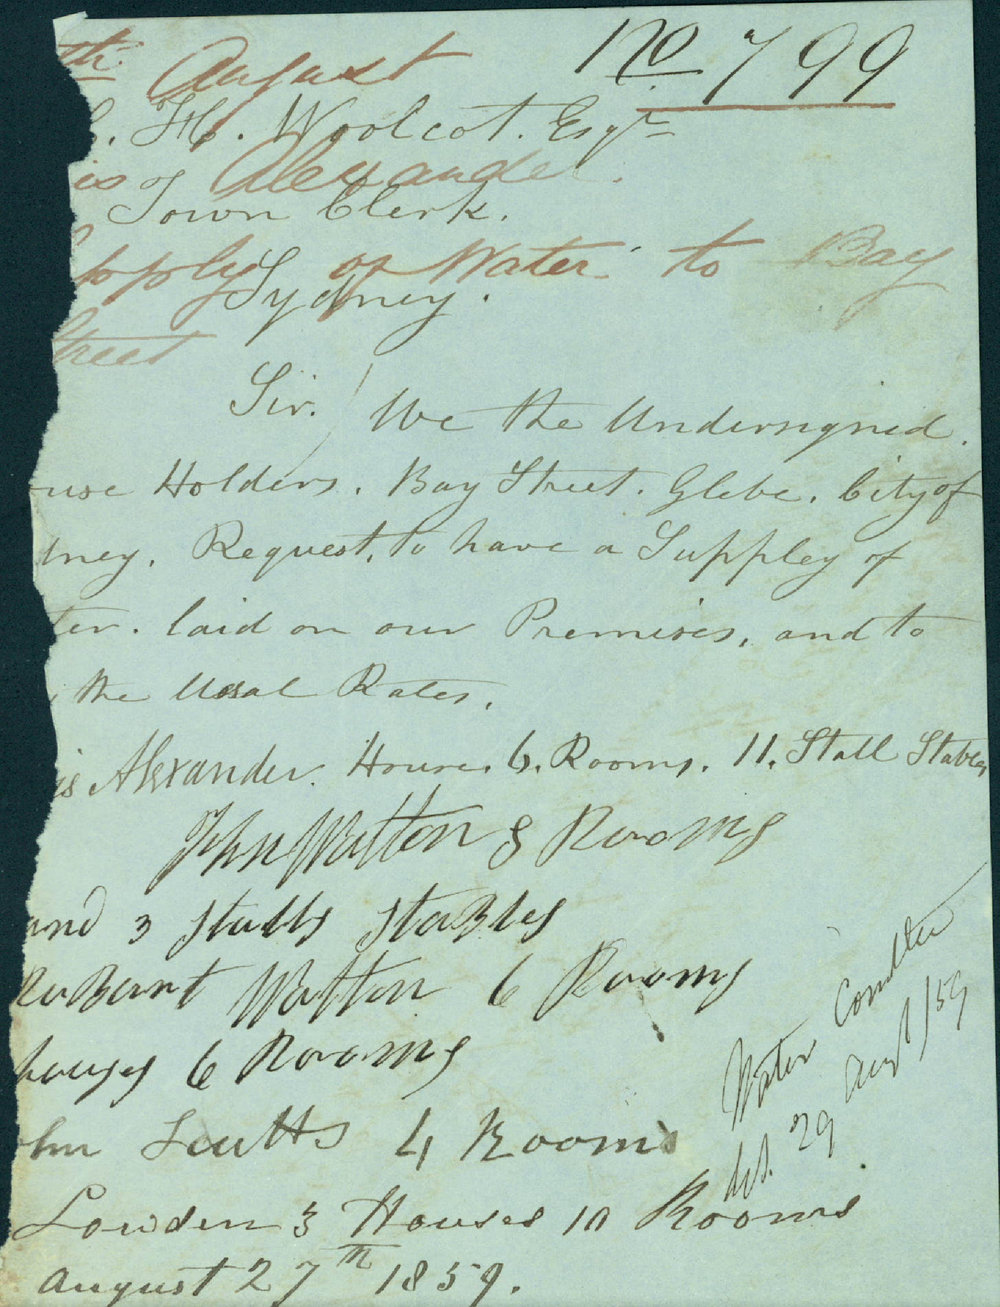 th August
No 799
. H. Woolcot. Esqr
is of Alexander.
Town Clerk.
upply of Water to Bay
Sydney.
Street
Sir. We the Undersignid.
use Holders. Bay Street. Glebe. City of
dney. Request. to have a Suppley of
ter. laid on our Premises, and to
the Usal Rates.
is Alexander. House. 6. Rooms. 11. Stall Stables
John Watton 8 Rooms
and 3 stalls staBles
RoBart Watton 6 Rooms
houses 6 Rooms
ohn Scutts 4 Rooms
Lowden 3 Houses 10 Rooms
August 27th 1859.
Water Comttee
29 Augt/59